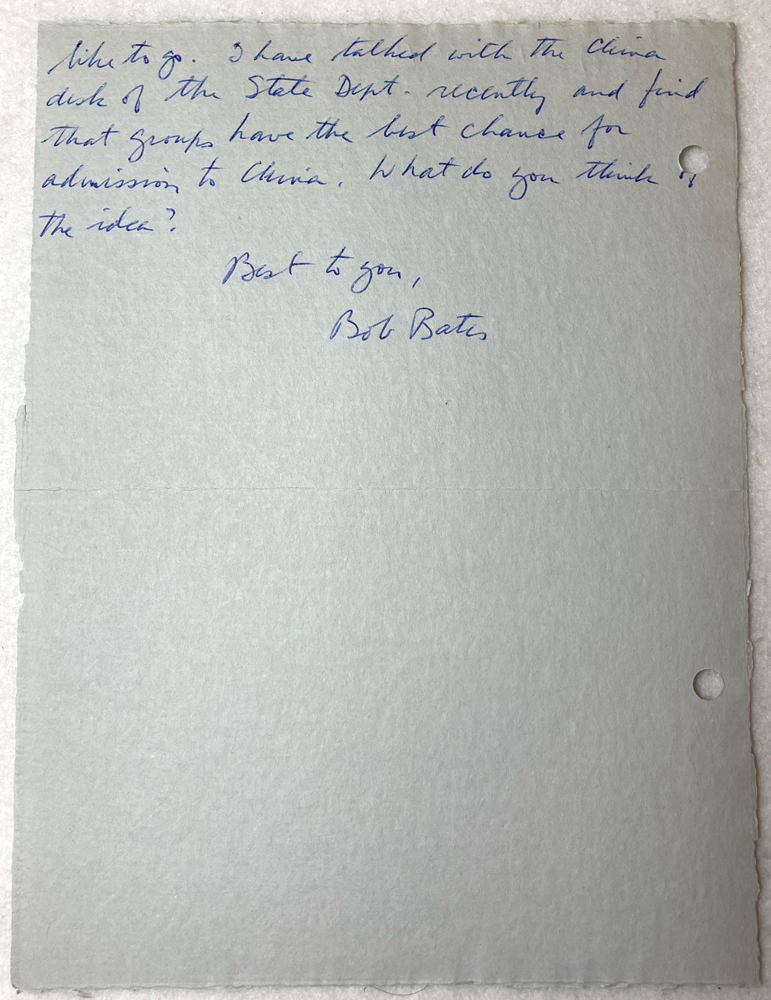 like to go. I have talked with the China
desk of the State Dept. recently and find
that groups have the best chance for
admission to China. What do you think of
the idea?
Best to you,
Bob Bates